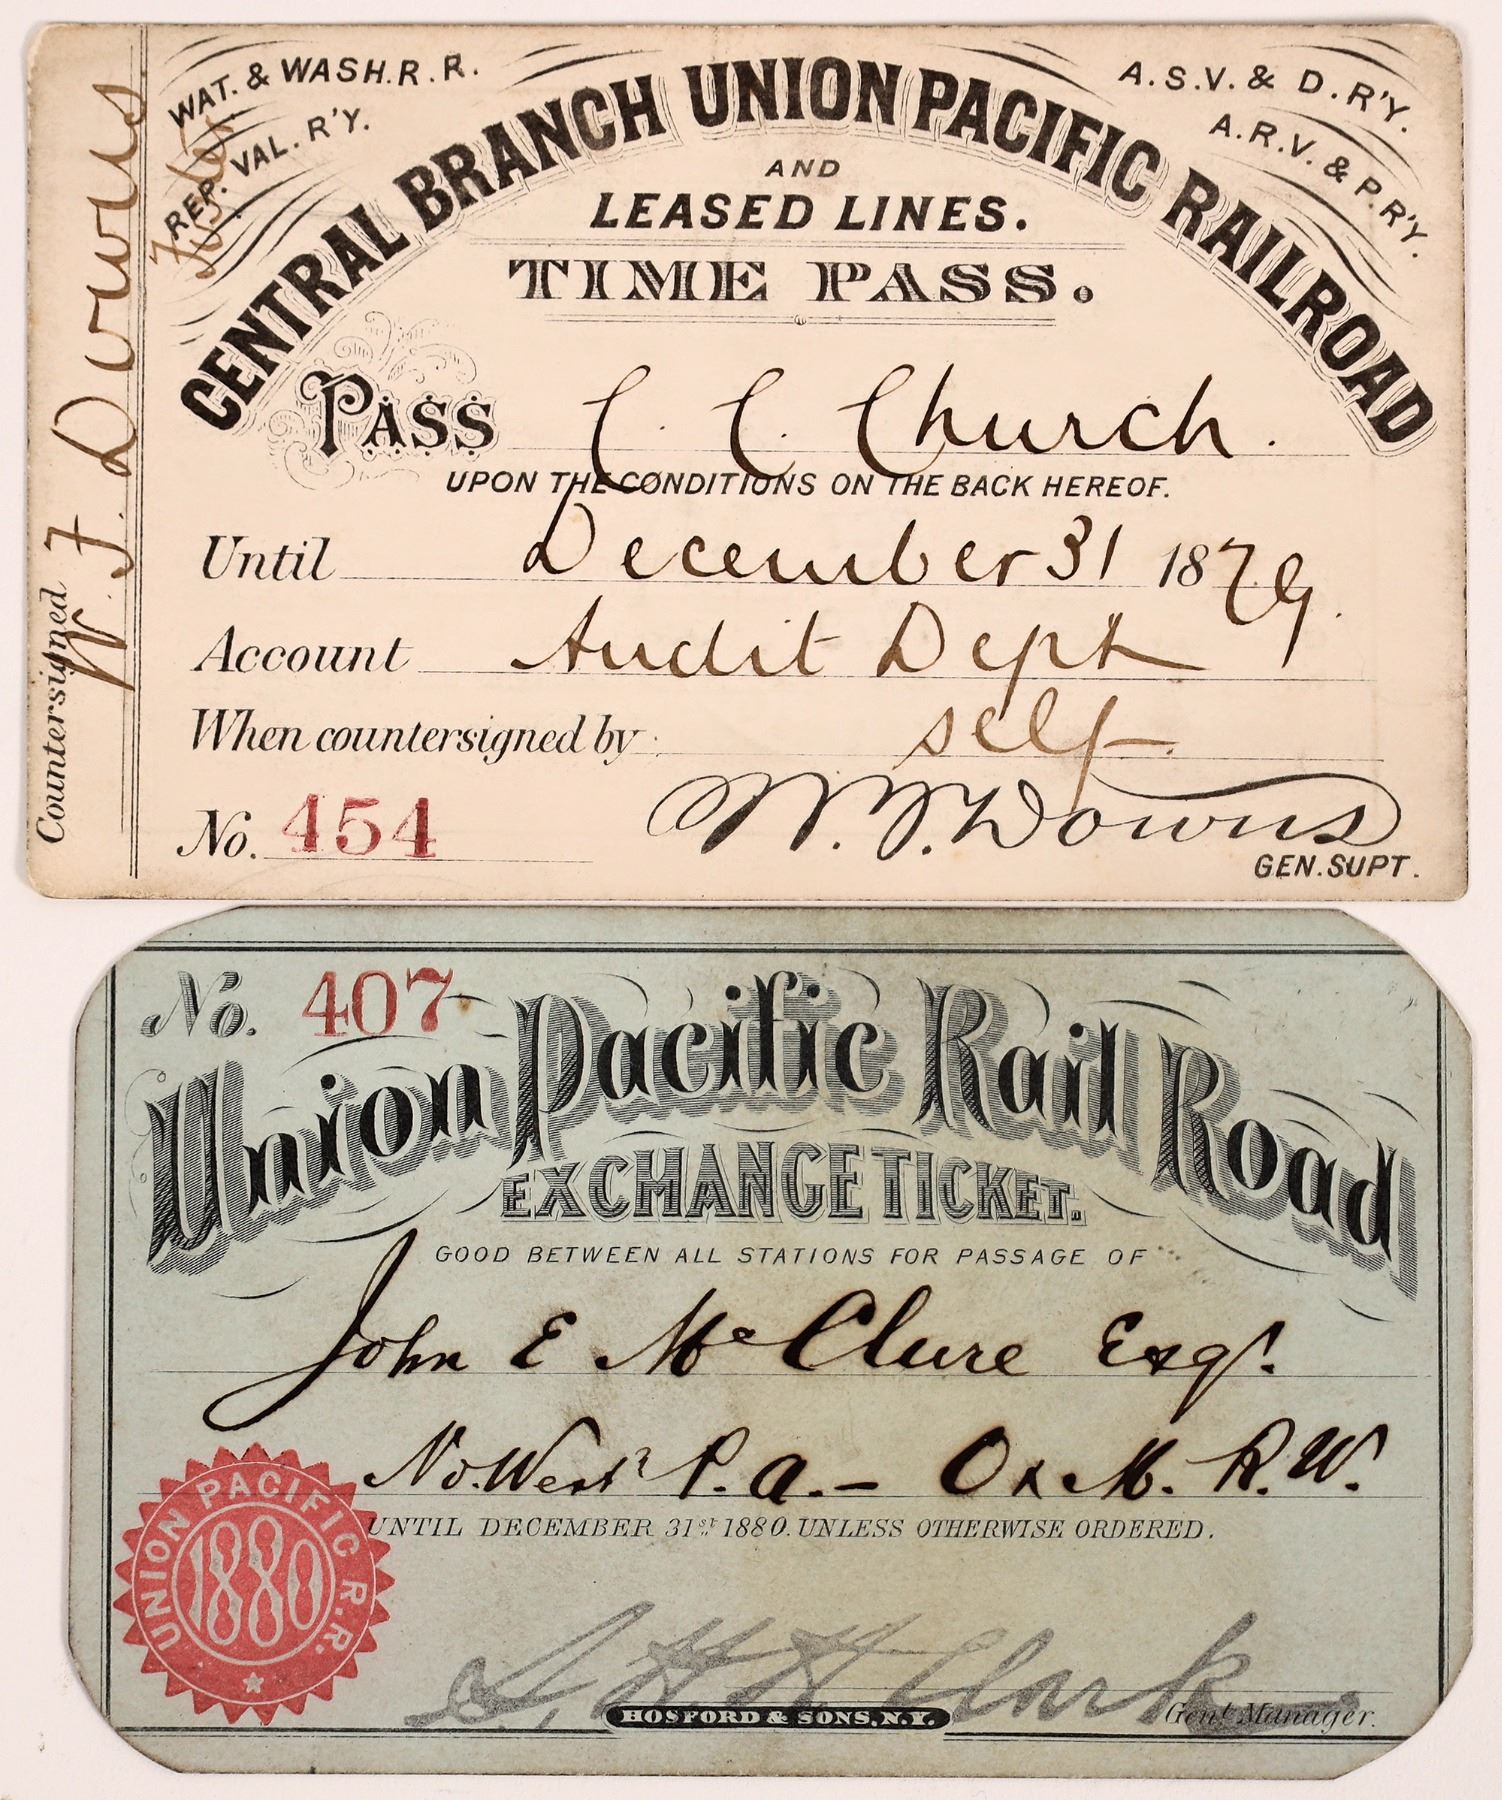 WAT. & WASH. R. R.
REP. VAL. R'Y.
A. S. V. & D. R'Y.
A. R. V. & P. R'Y.
CENTRAL BRANCH UNION PACIFIC RAILROAD
AND
LEASED LINES.
TIME PASS.
PASS C. C. Church.
UPON THE CONDITIONS ON THE BACK HEREOF.
Until December 31 1879.
Account Audit Dept
When countersigned by self.
No. 454
W. F. Downs
GEN. SUPT.
Countersigned W. F. Downs
No. 407
Union Pacific Rail Road
EXCHANGE TICKET.
GOOD BETWEEN ALL STATIONS FOR PASSAGE OF
John E McClure Esqr.
No. West P. A. – C & M. R. W.
UNTIL DECEMBER 31st 1880. UNLESS OTHERWISE ORDERED.
UNION PACIFIC R. R.
1880
S. H. H. Clark
Genl. Manager.
HOSFORD & SONS, N.Y.